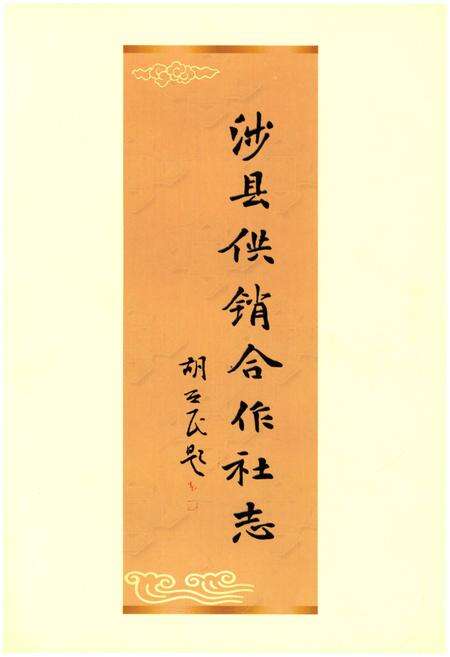 涉县供销合作社志
胡亚民题